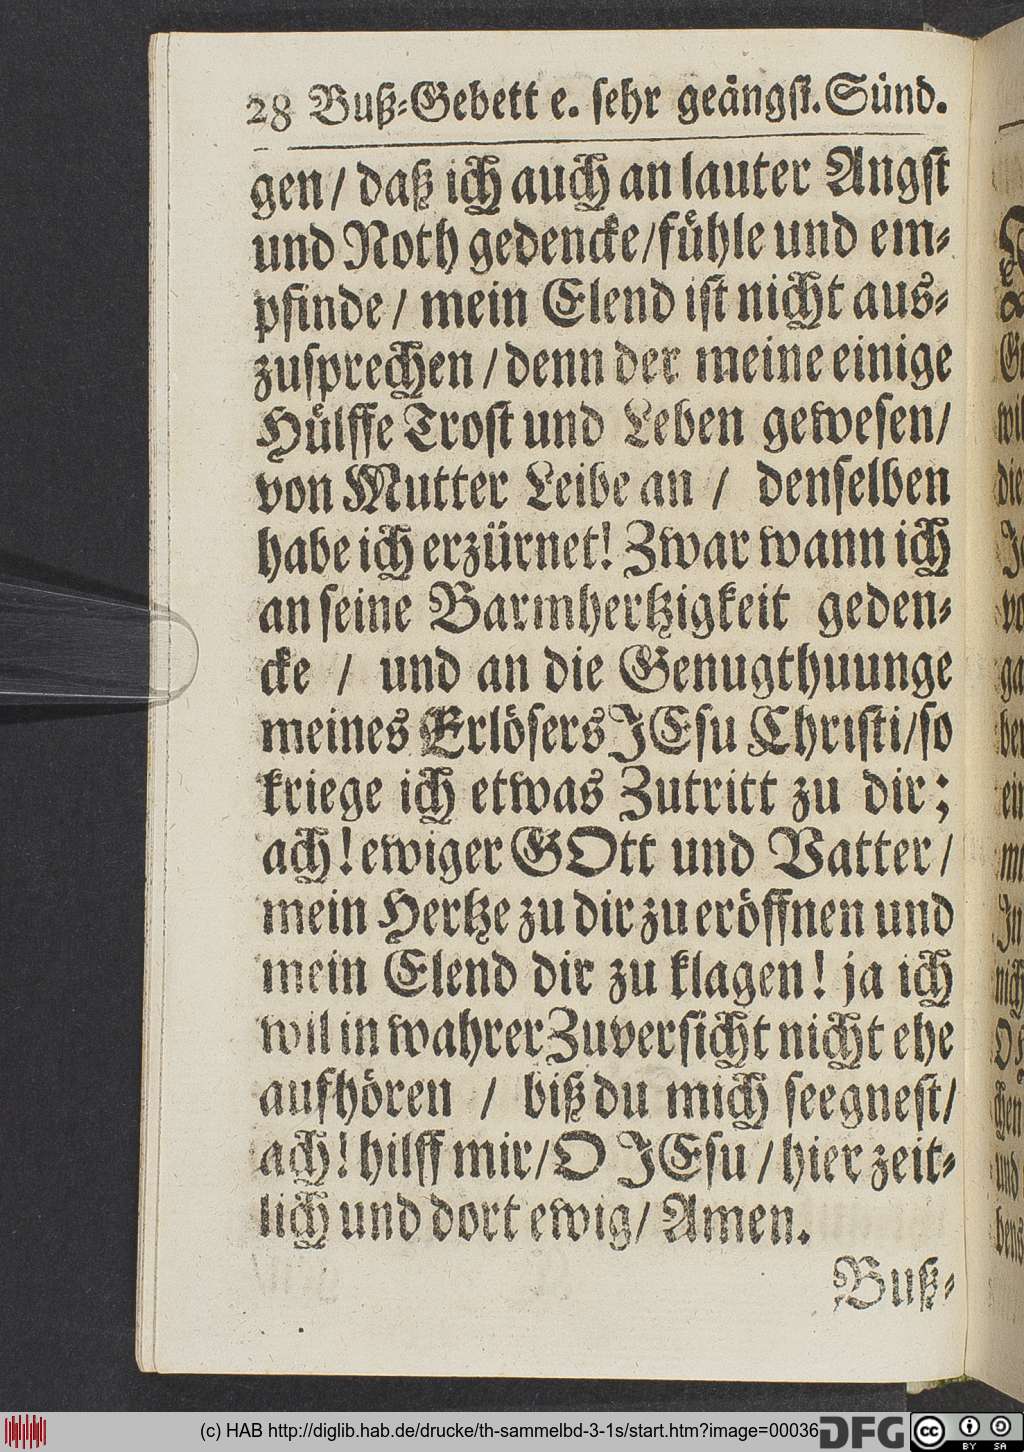 28 Buß-Gebett e. sehr geängst. Sünd.
gen / daß ich auch an lauter Angst
und Noth gedencke / fühle und em-
pfinde / mein Elend ist nicht aus-
zusprechen / denn der meine einige
Hülffe Trost und Leben gewesen /
von Mutter Leibe an / denselben
habe ich erzürnet! Zwar wann ich
an seine Barmhertzigkeit geden-
cke / und an die Genugthuunge
meines Erlösers JEsu Christi / so
kriege ich etwas Zutritt zu dir;
ach! ewiger GOtt und Vatter /
mein Hertze zu dir zu eröffnen und
mein Elend dir zu klagen! ja ich
wil in wahrer Zuversicht nicht ehe
aufhören / biß du mich seegnest /
ach! hilff mir / O JEsu / hier zeit-
lich und dort ewig / Amen.
Buß-
wil
die
(c) HAB http://diglib.hab.de/drucke/th-sammelbd-3-1s/start.htm?image=00036
DFG
cc BY SA